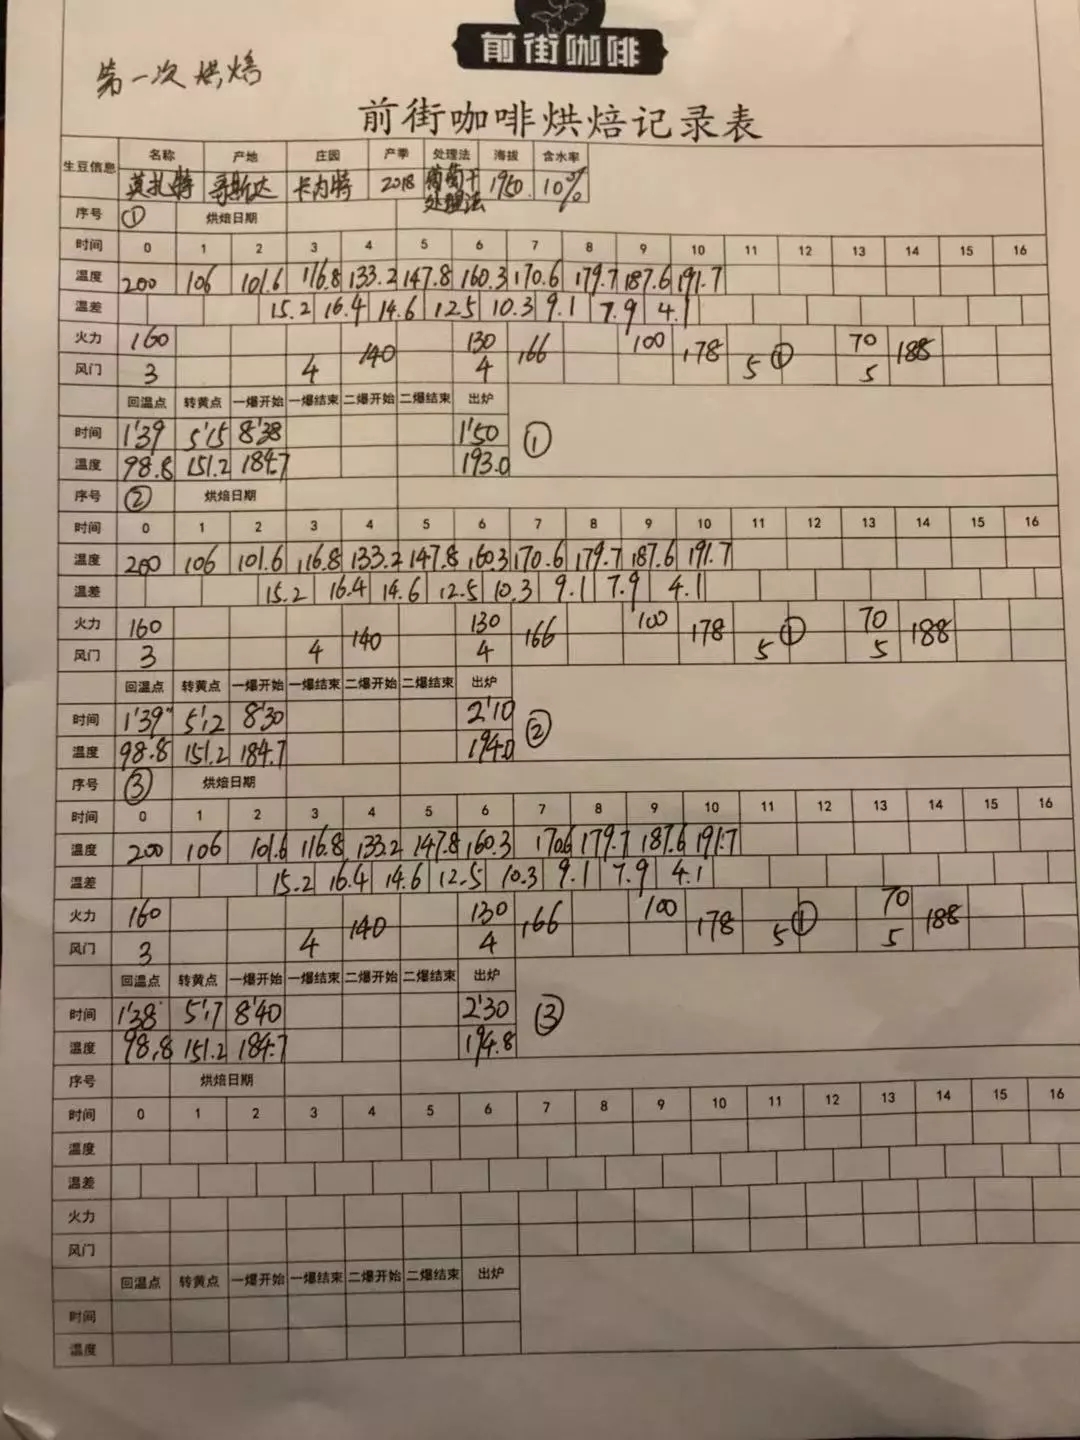 前街咖啡
第一次烘焙
前街咖啡烘焙记录表
生豆信息 名称 产地 庄园 产季 处理法 海拔 含水率
莫扎特 哥斯达 卡内特 2018 葡萄干处理法 1950 10%
序号 ① 烘焙日期
时间 0 1 2 3 4 5 6 7 8 9 10 11 12 13 14 15 16
温度 200 106 101.6 116.8 133.2 147.8 160.3 170.6 179.7 187.6 191.7
温差 15.2 16.4 14.6 12.5 10.3 9.1 7.9 4.1
火力 160 140 130 166 100 178 ① 70 188
风门 3 4 4 5 5
回温点 转黄点 一爆开始 一爆结束 二爆开始 二爆结束 出炉
时间 1'39 5'15 8'38 1'50 ①
温度 98.8 151.2 184.7 193.0
序号 ② 烘焙日期
时间 0 1 2 3 4 5 6 7 8 9 10 11 12 13 14 15 16
温度 200 106 101.6 116.8 133.2 147.8 160.3 170.6 179.7 187.6 191.7
温差 15.2 16.4 14.6 12.5 10.3 9.1 7.9 4.1
火力 160 140 130 166 100 178 ① 70 188
风门 3 4 4 5 5
回温点 转黄点 一爆开始 一爆结束 二爆开始 二爆结束 出炉
时间 1'39" 5'12 8'30 2'10 ②
温度 98.8 151.2 184.7 194.0
序号 ③ 烘焙日期
时间 0 1 2 3 4 5 6 7 8 9 10 11 12 13 14 15 16
温度 200 106 101.6 116.8 133.2 147.8 160.3 170.6 179.7 187.6 191.7
温差 15.2 16.4 14.6 12.5 10.3 9.1 7.9 4.1
火力 160 140 130 166 100 178 ① 70 188
风门 3 4 4 5 5
回温点 转黄点 一爆开始 一爆结束 二爆开始 二爆结束 出炉
时间 1'38 5'17 8'40 2'30 ③
温度 98.8 151.2 184.7 194.8
序号 烘焙日期
时间 0 1 2 3 4 5 6 7 8 9 10 11 12 13 14 15 16
温度
温差
火力
风门
回温点 转黄点 一爆开始 一爆结束 二爆开始 二爆结束 出炉
时间
温度